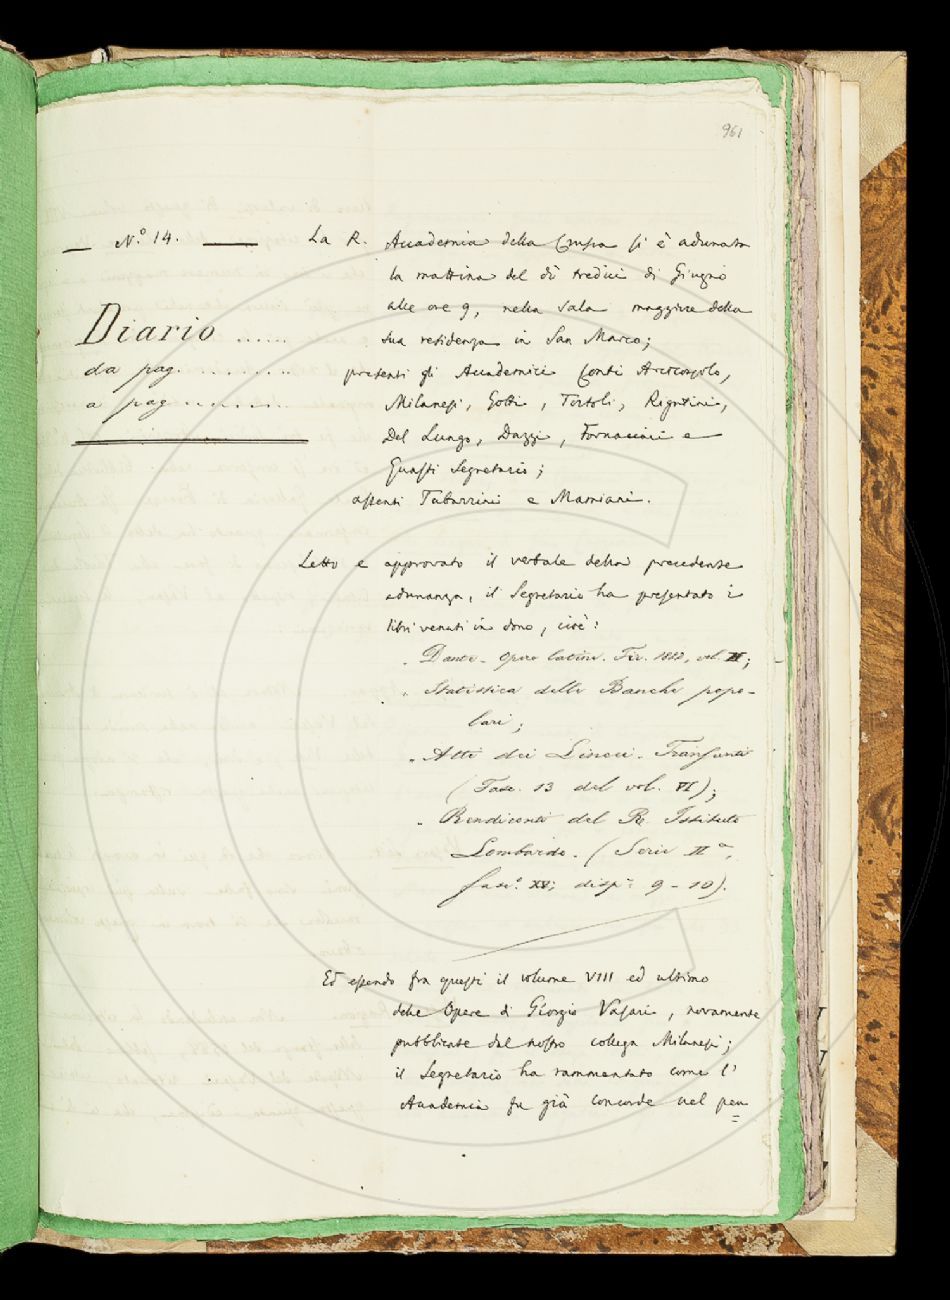 961
N.° 14.
Diario ......
da pag. .........
a pag. .........
La R. Accademia della Crusca si è adunata
la mattina del dì tredici di Giugno
alle ore 9, nella sala maggiore della
sua residenza in San Marco;
presenti gli Accademici Conti Arciconsolo,
Milanesi, Gotti, Tortoli, Rigutini,
Del Lungo, Dazzi, Fornaciari e
Guasti Segretario;
assenti Tabarrini e Mamiani.
Letto e approvato il verbale della precedente
adunanza, il Segretario ha presentato i
libri venuti in dono, cioè:
Dante. Opere latine. Fir. 1882, vol. II;
Statistica delle Banche popo-
lari;
Atti dei Lincei. Transunti
(Fasc. 13 del vol. VI);
Rendiconti del R. Istituto
Lombardo. (Serie IIª,
fasc.° XV; disp.e 9-10).
Ed essendo fra questi il volume VIII ed ultimo
delle Opere di Giorgio Vasari, novamente
pubblicate dal nostro collega Milanesi;
il Segretario ha rammentato come l'
Accademia fu già concorde nel pen=